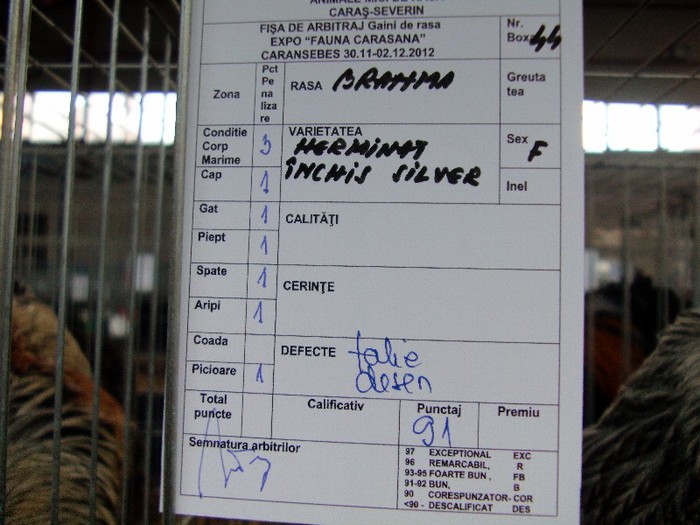 CARAȘ-SEVERIN
FIȘA DE ARBITRAJ Gaini de rasa
EXPO "FAUNA CARASANA"
CARANSEBES 30.11-02.12.2012
Nr.
Box 44
Zona
Pct
Pe
na
liza
re
RASA BRAHMA
Greuta
tea
Conditie
Corp
Marime
3
VARIETATEA
HERMINAT
ÎNCHIS SILVER
Sex
F
Inel
Cap 1
Gat 1
CALITĂŢI
Piept 1
Spate 1
CERINŢE
Aripi 1
Coada
DEFECTE talie
desen
Picioare 1
Total
puncte
Calificativ
Punctaj
91
Premiu
Semnatura arbitrilor
97 EXCEPTIONAL EXC
96 REMARCABIL, R
93-95 FOARTE BUN , FB
91-92 BUN, B
90 CORESPUNZATOR- COR
<90 - DESCALIFICAT DES